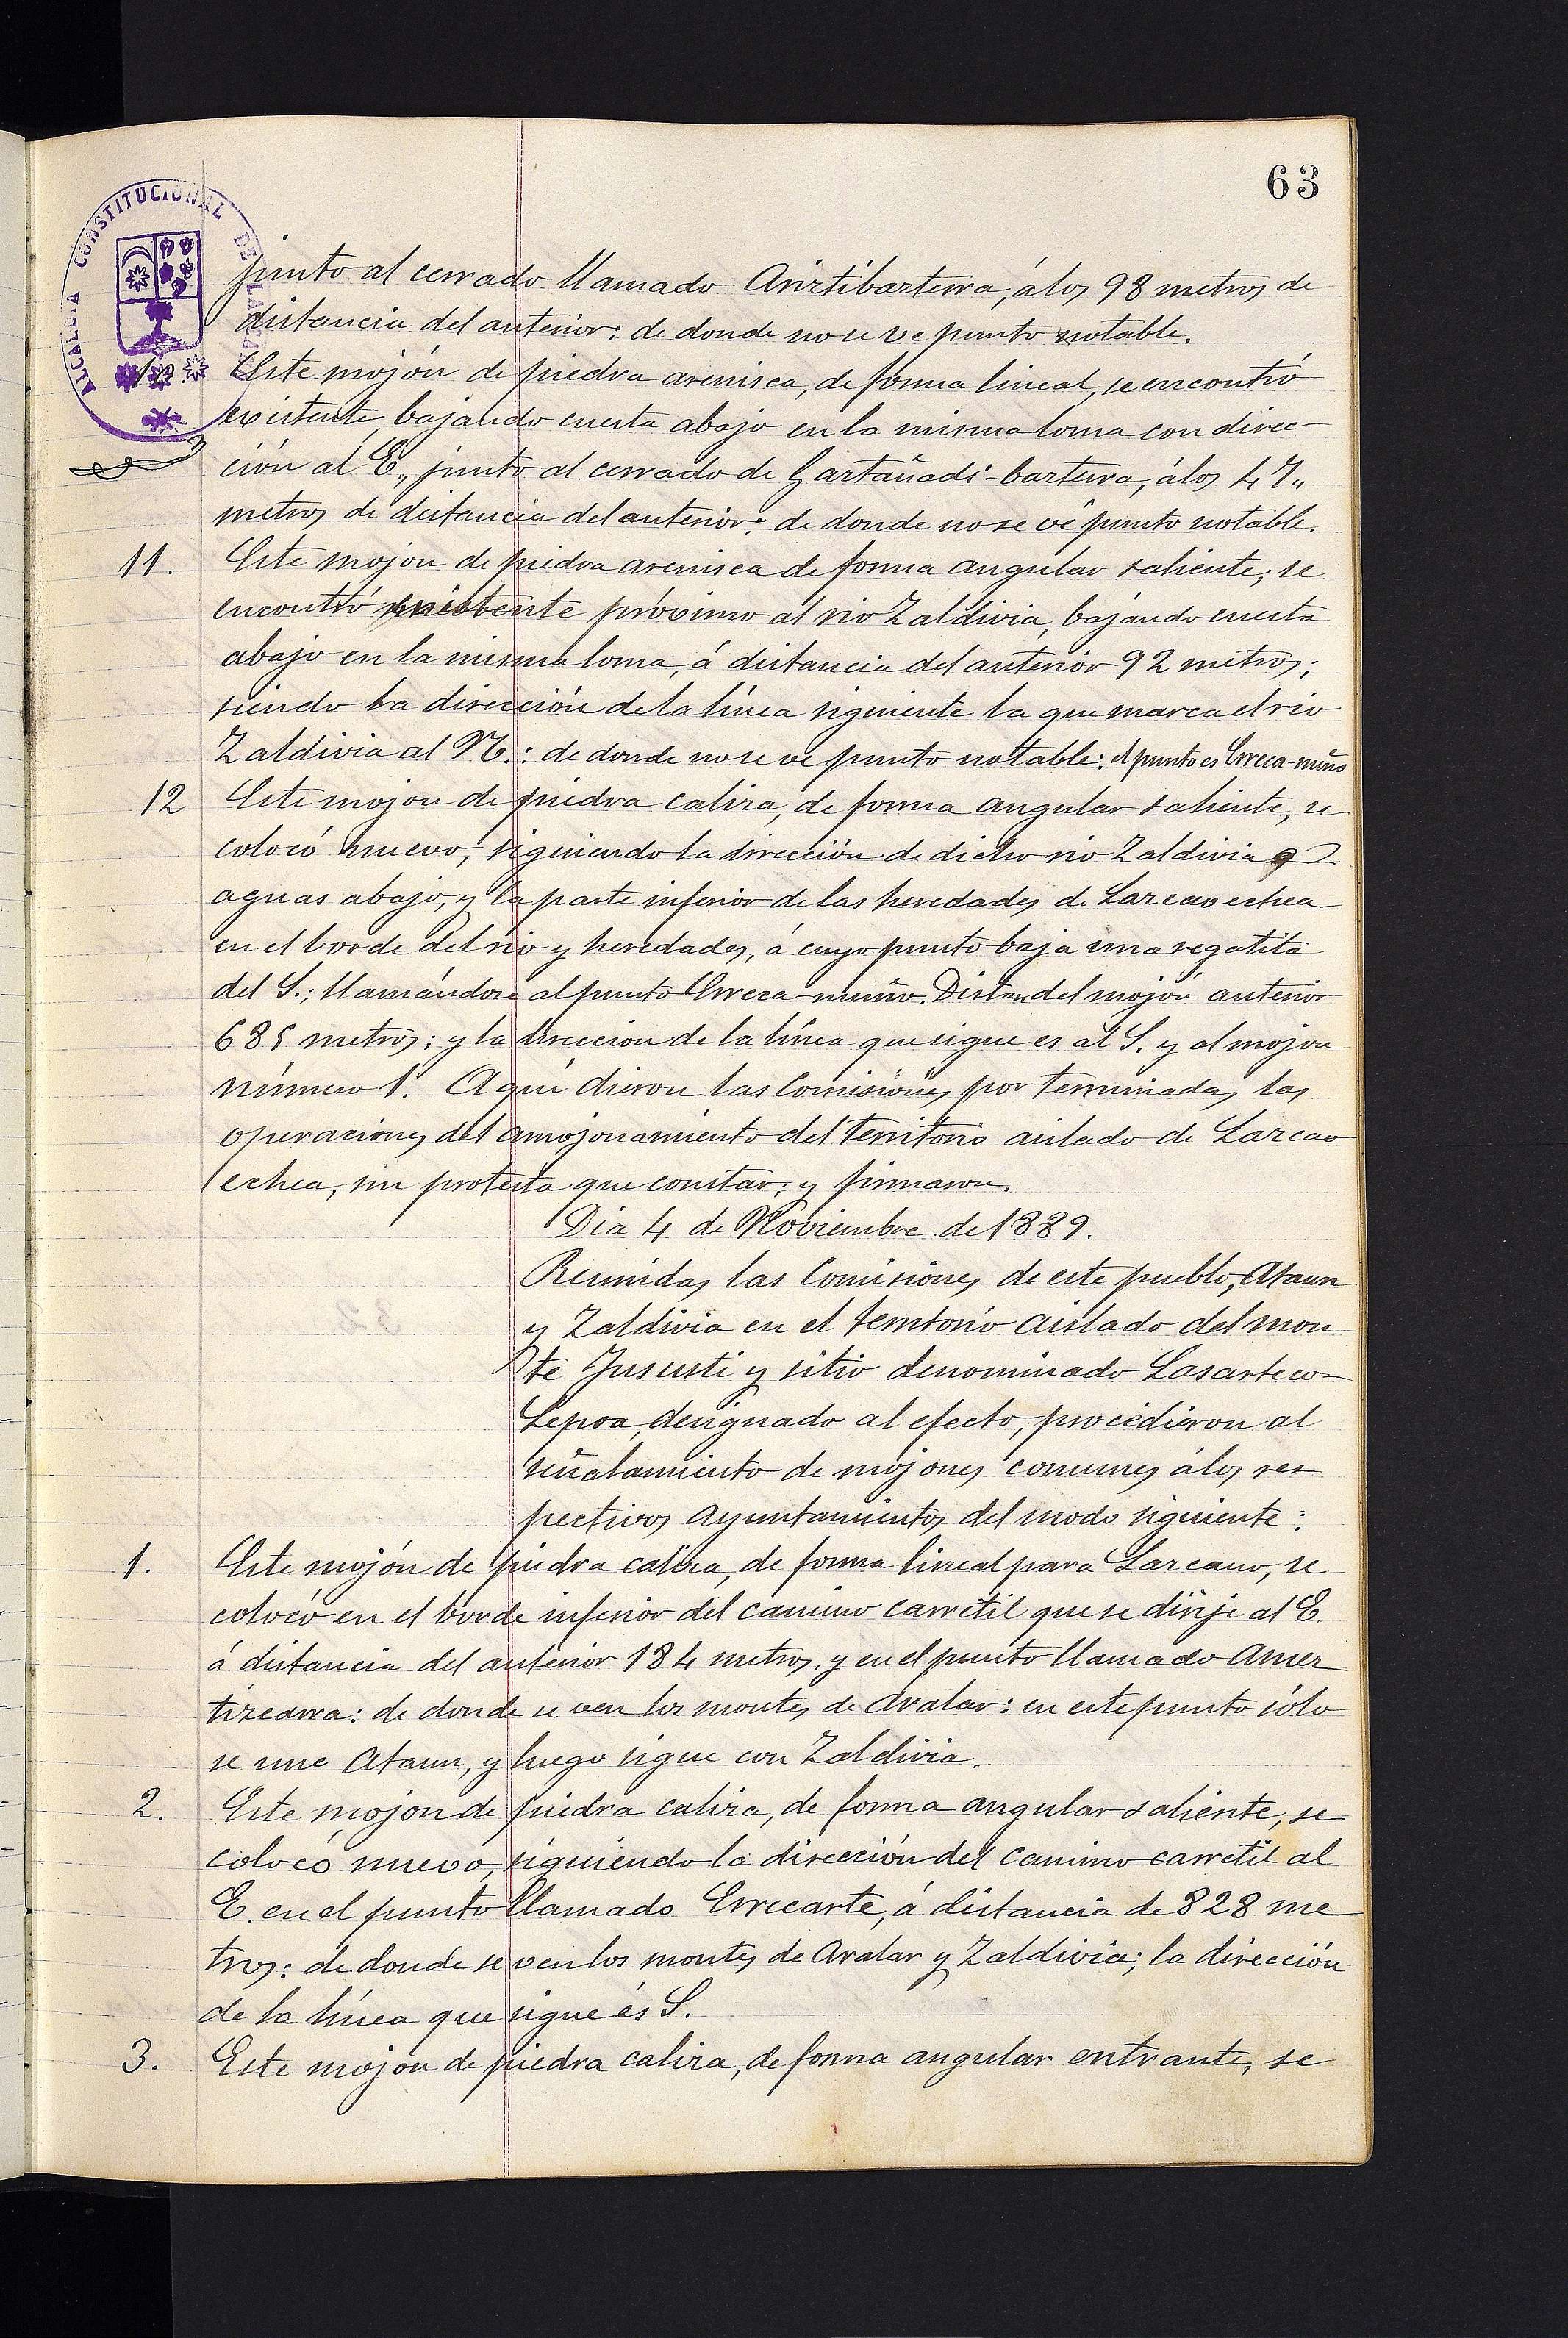 63
ALCALDIA CONSTITUCIONAL DE LAZCANO
junto al cerrado llamado Airztibarterra, á los 98 metros de
distancia del anterior: de donde no se ve punto notable.
10. Este mojón de piedra arenisca, de forma lineal, se encontró
existente, bajando cuesta abajo en la misma loma con direc-
ción al E., junto al cerrado de Gartañadi-barterra, á los 47,,
metros de distancia del anterior: de donde no se vé punto notable.
11. Este mojon de piedra arenisca de forma angular saliente, se
encontró existente próximo al rio Zaldivia, bajando cuesta
abajo en la misma loma, á distancia del anterior 92 metros;
siendo la dirección de la línea siguiente la que marca el rio
Zaldivia al N.: de donde no se ve punto notable: el punto es Erreca-muño
12 Este mojon de piedra caliza, de forma angular saliente, se
colocó nuevo, siguiendo la dirección de dicho rio Zaldivia
aguas abajo, y la parte inferior de las heredades de Lazcaoechea
en el borde del rio y heredades, á cuyo punto baja una regatita
del S.; llamándose al punto Erreca-muño. Distan del mojón anterior
685 metros; y la direccion de la línea que sigue es al S. y al mojon
número 1. Aqui dieron las Comisiones por terminadas las
operaciones del amojonamiento del territorio aislado de Lazcao
echea, sin protesta que constar; y firmaron.
Dia 4 de Noviembre de 1889.
Reunidas las Comisiones de este pueblo, Ataun
y Zaldivia en el territorio aislado del mon
te Jususti y sitio denominado Lasarteco-
Lepoa, designado al efecto, procedieron al
señalamiento de mojones comunes á los res
pectivos Ayuntamientos del modo siguiente:
1. Este mojón de piedra caliza, de forma lineal para Lazcano, se
colocó en el borde inferior del camino carretil que se dirije al E.
á distancia del anterior 184 metros, y en el punto llamado Amez
tizearra: de donde se ven los montes de Aralar: en este punto sólo
se une Ataun, y luego sigue con Zaldivia.
2. Este mojon de piedra caliza, de forma angular saliente, se
colocó nuevo, siguiendo la dirección del camino carretil al
E. en el punto llamado Errecarte, á distancia de 828 me
tros: de donde se ven los montes de Aralar y Zaldivia; la dirección
de la línea que sigue és S.
3. Este mojon de piedra caliza, de forma angular entrante, se